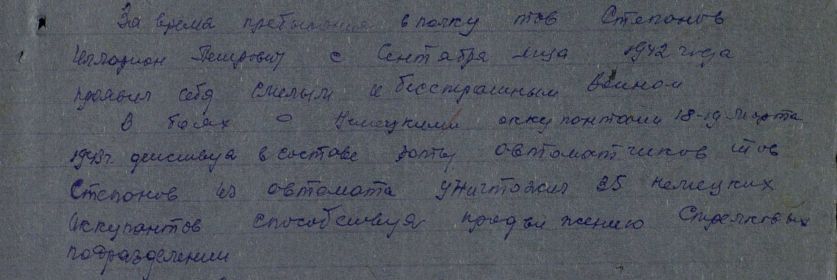 За время пребывания в полку тов Степонов
Илларион Петрович с Сентября м-ца 1942 года
проявил себя смелым и бесстрашным воином
В боях с Немецкими оккупонтоми 18-19 марта
1943г действуя в составе роты овтомотчиков тов
Степонов из овтомата уничтожил 25 немецких
оккупантов способствуя продвижению Стрелковых
подразделении